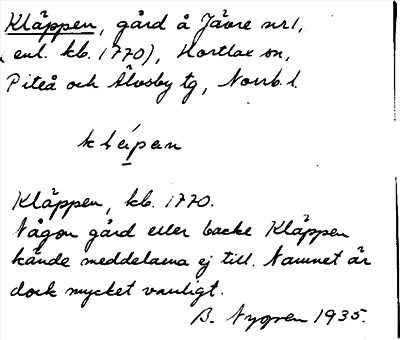 Kläppen, gård å Jävre nr 1,
enl. kb. 1770), Hortlax sn,
Piteå och Älvsby tg, Norrb. l.
kläpan
Kläppen, kb. 1770.
Någon gård eller backe Kläppen
kände meddelarna ej till. Namnet är
dock mycket vanligt.
B. Nygren 1935.